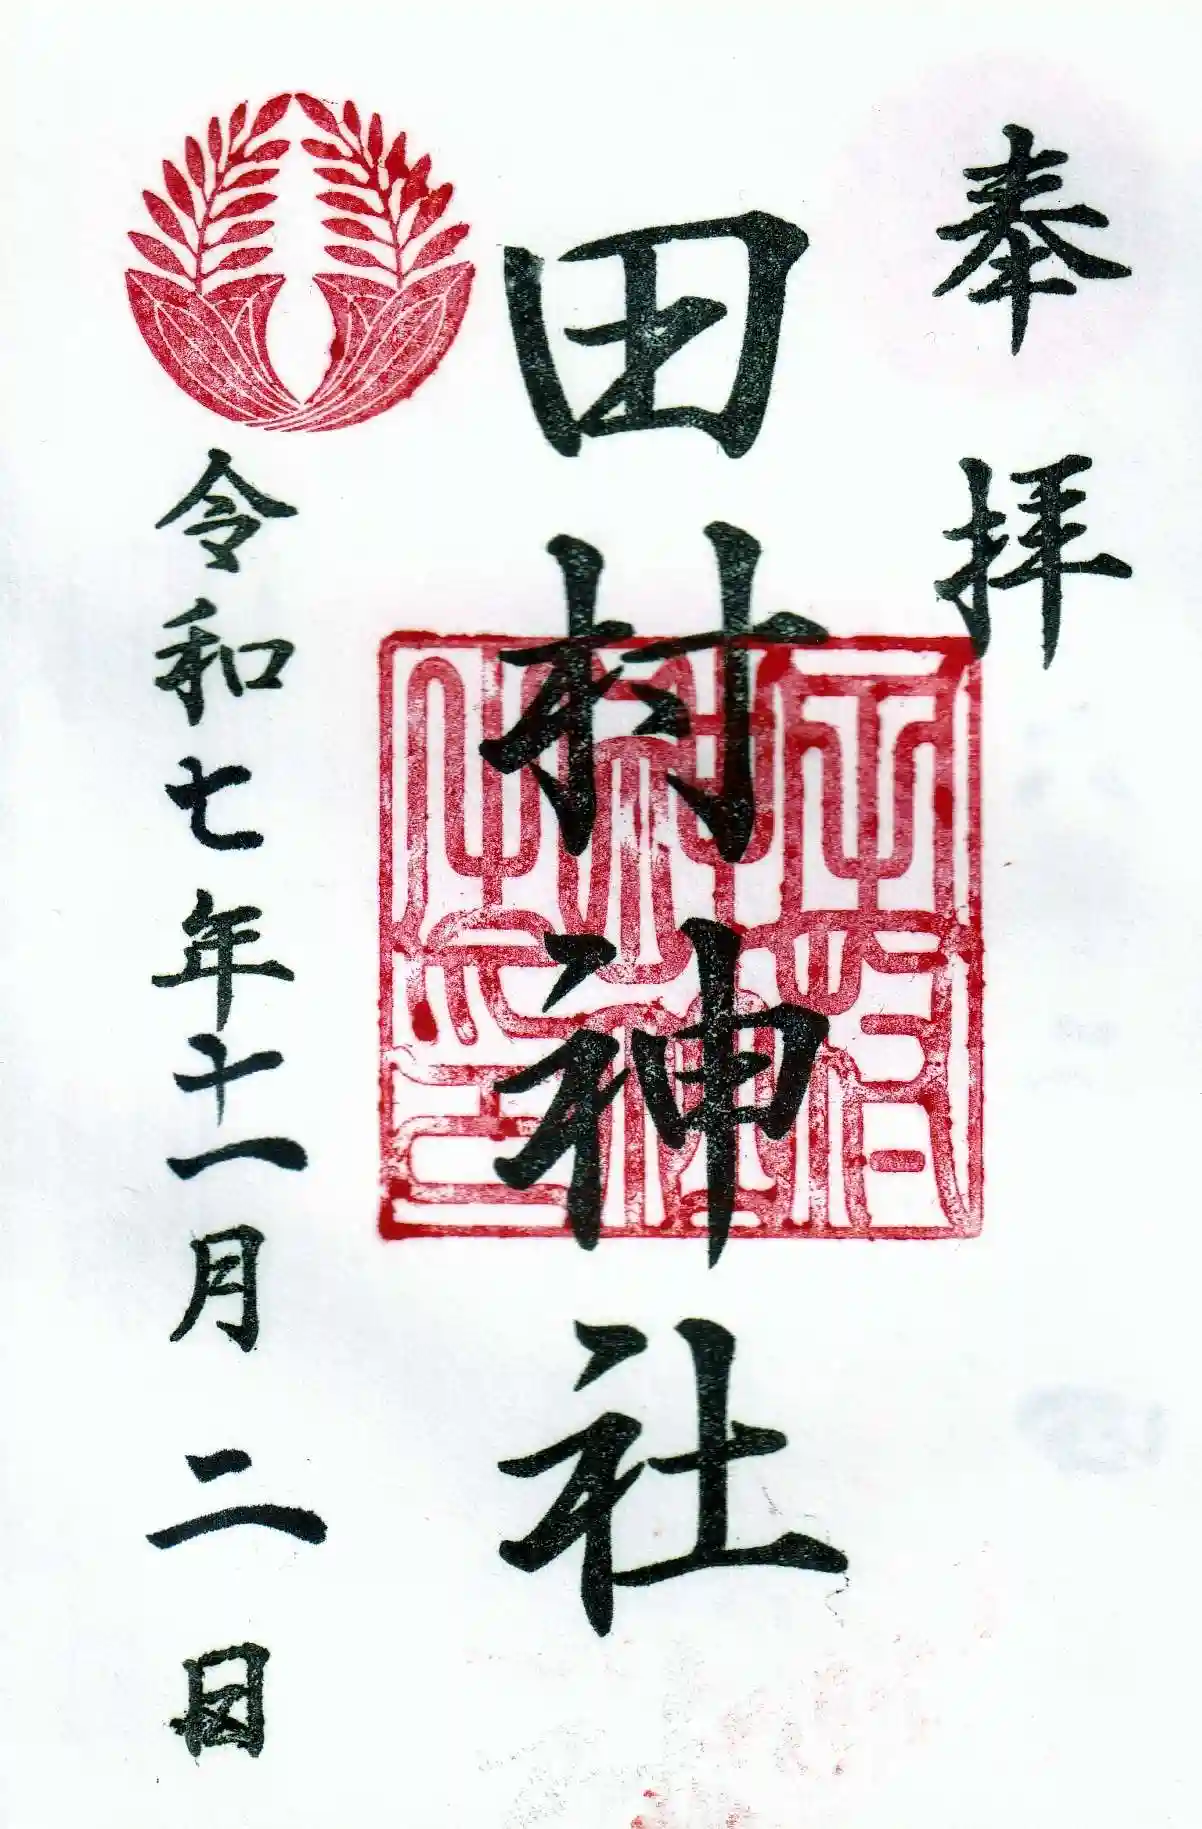 奉拝
田村神社
令和七年十一月二日